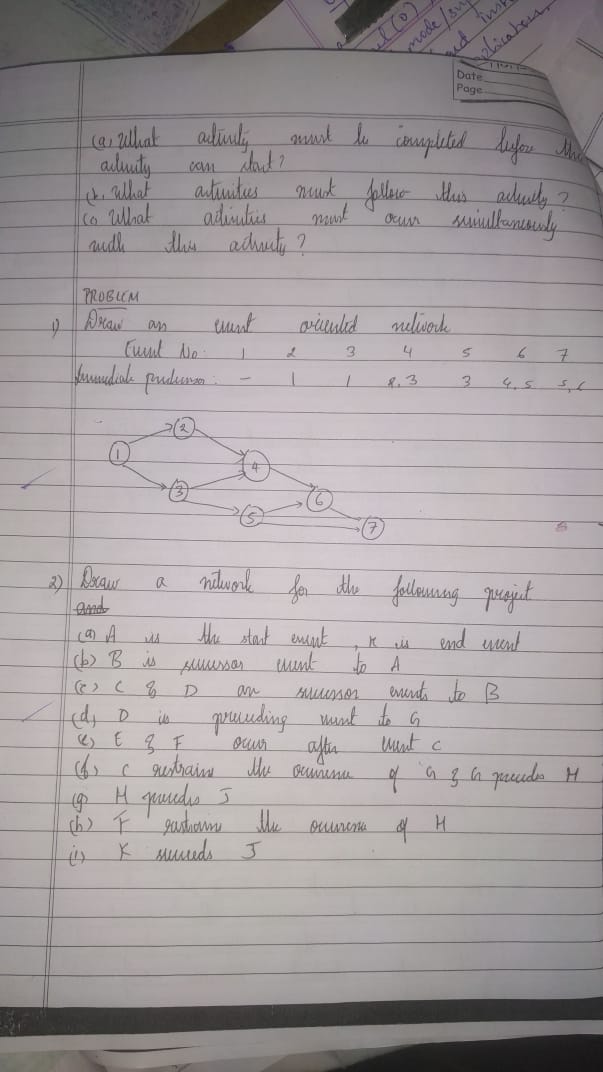 Date
Page
(a) What activity must be completed before the
activity can start?
(b) What activities must follow this activity?
(c) What activities must occur simultaneously
with this activity?
PROBLEM
1) Draw an event oriented network
Event No. 1 2 3 4 5 6 7
Immediate predecessor: - 1 1 2,3 3 4,5 5,6
2
1
4
3
6
5
7
2) Draw a network for the following project
and
(a) A is the start event, K is end event
(b) B is successor event to A
(c) C & D are successor events to B
(d) D is preceding event to G
(e) E & F occur after event C
(f) C restrains the occurence of G & G precedes H
(g) H precedes J
(h) F restrains the occurence of H
(i) K succeeds J